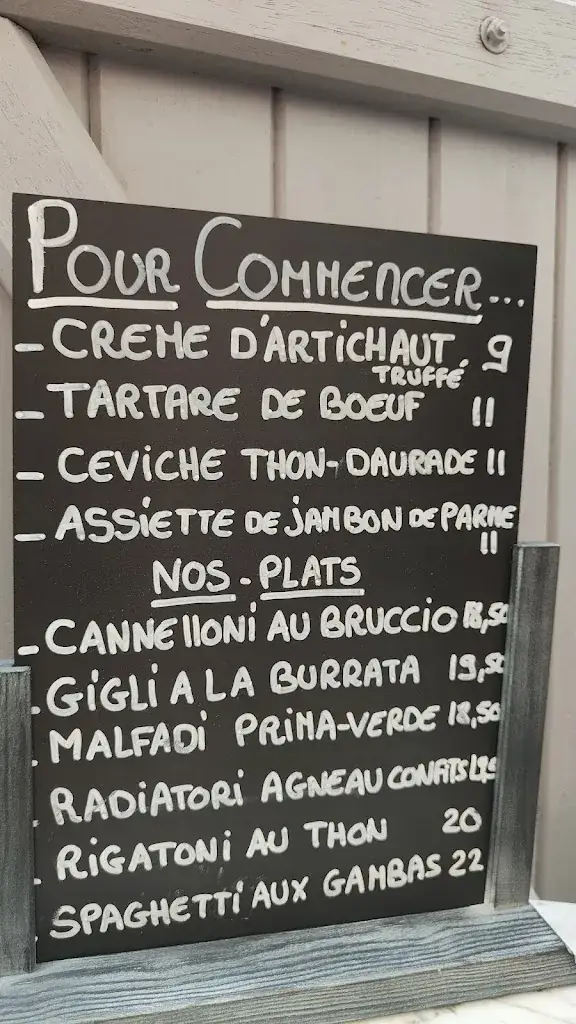 POUR COMMENCER...
- CREME D'ARTICHAUT 9
TRUFFÉ
- TARTARE DE BOEUF 11
- CEVICHE THON-DAURADE 11
- ASSIETTE DE JAMBON DE PARME
11
NOS - PLATS
- CANNELLONI AU BRUCCIO 18,50
- GIGLI A LA BURRATA 19,50
- MALFADI PRIMA-VERDE 18,50
- RADIATORI AGNEAU CONFITS
- RIGATONI AU THON 20
- SPAGHETTI AUX GAMBAS 22